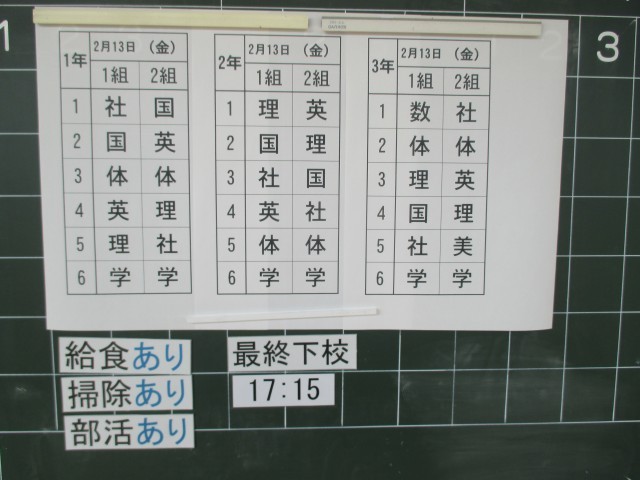 1
3
1年 2月13日 (金)
1組 2組
1 社 国
2 国 英
3 体 体
4 英 理
5 理 社
6 学 学
2年 2月13日 (金)
1組 2組
1 理 英
2 国 理
3 社 国
4 英 社
5 体 体
6 学 学
3年 2月13日 (金)
1組 2組
1 数 社
2 体 体
3 理 英
4 国 理
5 社 美
6 学 学
給食あり
掃除あり
部活あり
最終下校
17:15